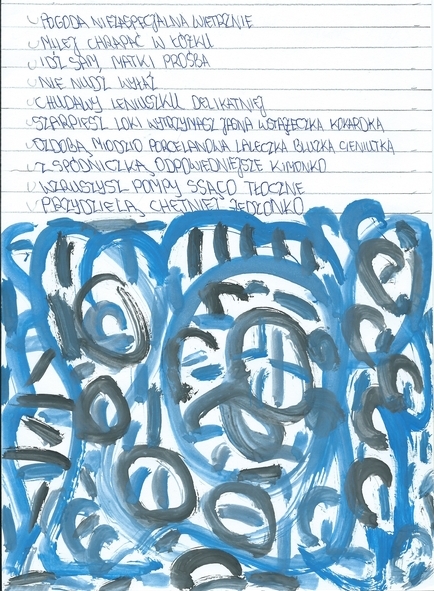 POGODA NIEZASPECJALNA WIETRZNIE
MILEJ CHRAPAĆ W ŁÓŻKU
IDŹ SAM, MATKI PROŚBA
NIE NUDZ WYŁAŹ
CHUDAWY LENIUSZKU DELIKATNIEJ
SZARPIESZ LOKI WYTRZYMASZ JEDNA WSTĄŻECZKA KOKARDKA
OZDOBĄ MIODZIO PORCELANOWA LALECZKA BLUZKA CIENIUTKA
Z SPÓDNICZKĄ ODPOWIEDNIEJSZE KIMONKO
WZRUSZYSZ POMPY SSĄCO TŁOCZNE
PRZYDZIELĄ CHĘTNIEJ JEDZONKO